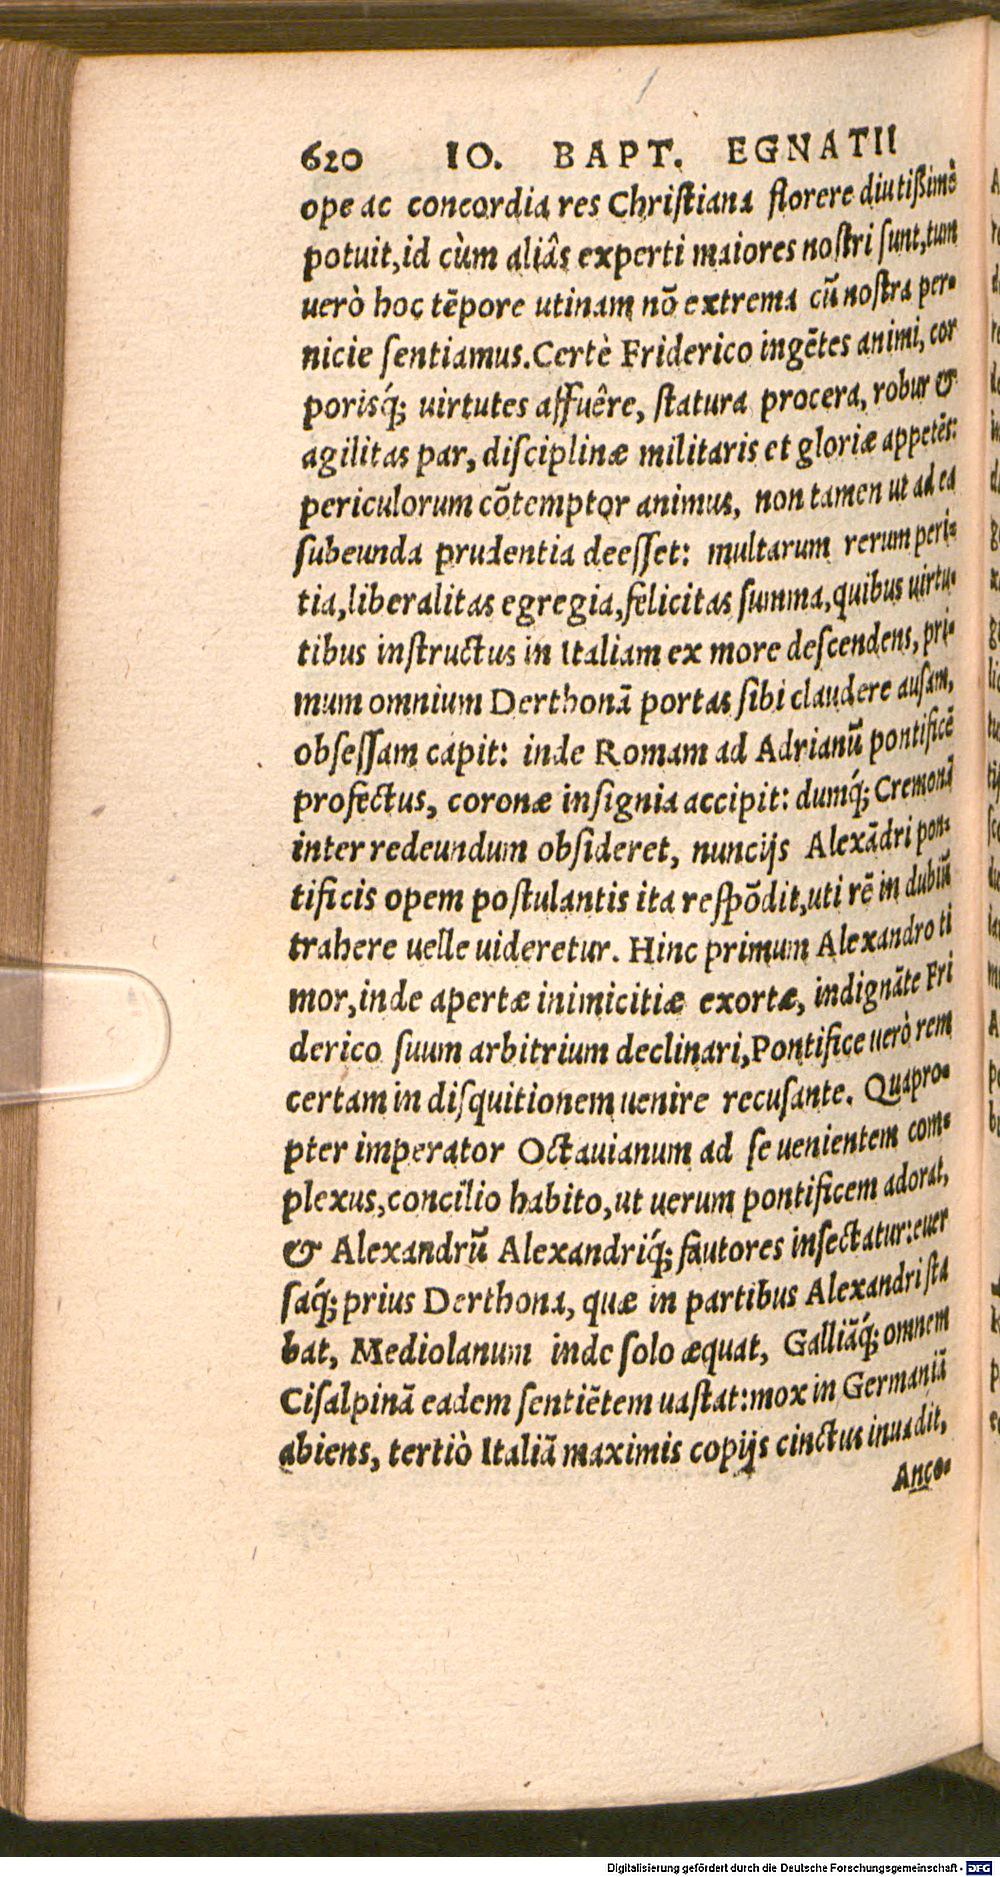 620 IO. BAPT. EGNATII
ope ac concordia res Christiana florere diutißimè
potuit, id cùm aliâs experti maiores nostri sunt, tum
uerò hoc tēpore utinam nō extrema cū nostra per-
nicie sentiamus. Certè Friderico ingētes animi, cor
porisq́; uirtutes affuêre, statura procera, robur &
agilitas par, disciplinæ militaris et gloriæ appetēs:
periculorum cōtemptor animus, non tamen ut ad ea
subeunda prudentia deesset: multarum rerum peri-
tia, liberalitas egregia, felicitas summa, quibus uirtu-
tibus instructus in Italiam ex more descendens, pri-
mum omnium Derthonā portas sibi claudere ausam,
obsessam capit: inde Romam ad Adrianū pontificē
profectus, coronæ insignia accipit: dumq́; Cremonā
inter redeundum obsideret, nuncijs Alexādri pon-
tificis opem postulantis ita respōdit, uti rē in dubiū
trahere uelle uideretur. Hinc primum Alexandro ti
mor, inde apertæ inimicitiæ exortæ, indignāte Fri
derico suum arbitrium declinari, Pontifice uerò rem
certam in disquitionem uenire recusante. Quapro-
pter imperator Octauianum ad se uenientem com-
plexus, concilio habito, ut uerum pontificem adorat,
& Alexandrū Alexandriq́; fautores insectatur: euer
saq́; prius Derthona, quæ in partibus Alexandri sta
bat, Mediolanum inde solo æquat, Galliāq́; omnem
Cisalpinā eadem sentiētem uastat: mox in Germaniā
abiens, tertiò Italiā maximis copijs cinctus inuadit,
Anco-
Digitalisierung gefördert durch die Deutsche Forschungsgemeinschaft - DFG